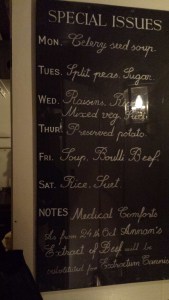 SPECIAL ISSUES
MON. Celery seed soup.
TUES. Split peas. Sugar.
WED. Raisins,
Mixed veg.
THUR. Preserved potato.
FRI. Soup, Boulli Beef.
SAT. Rice, Suet.
NOTES Medical Comforts
from 24th Oct. Annan's
Extract of Beef will be
substituted for Extractum Carnis